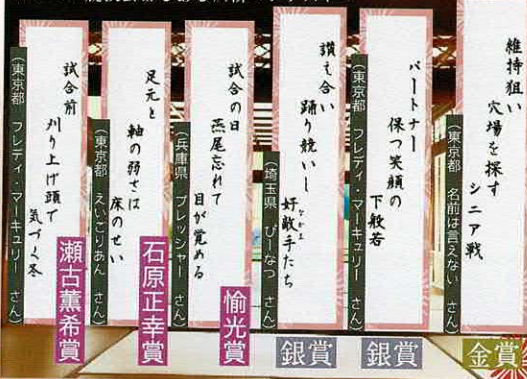 維持狙い
穴場を探す
シニア戦
(東京都 名前は言えない さん)
金賞
パートナー
保つ笑顔の
下般若
(東京都 フレディ・マーキュリー さん)
銀賞
讃え合い
踊り競いし
好敵手たち
なかま
(埼玉県 ぴーなつ さん)
銀賞
試合の日
燕尾忘れて
目が覚める
(兵庫県 プレッシャー さん)
愉光賞
足元と
軸の弱さは
床のせい
(東京都 えいごりあん さん)
石原正幸賞
試合前
刈り上げ頭で
気づく冬
(東京都 フレディ・マーキュリー さん)
瀬古薫希賞